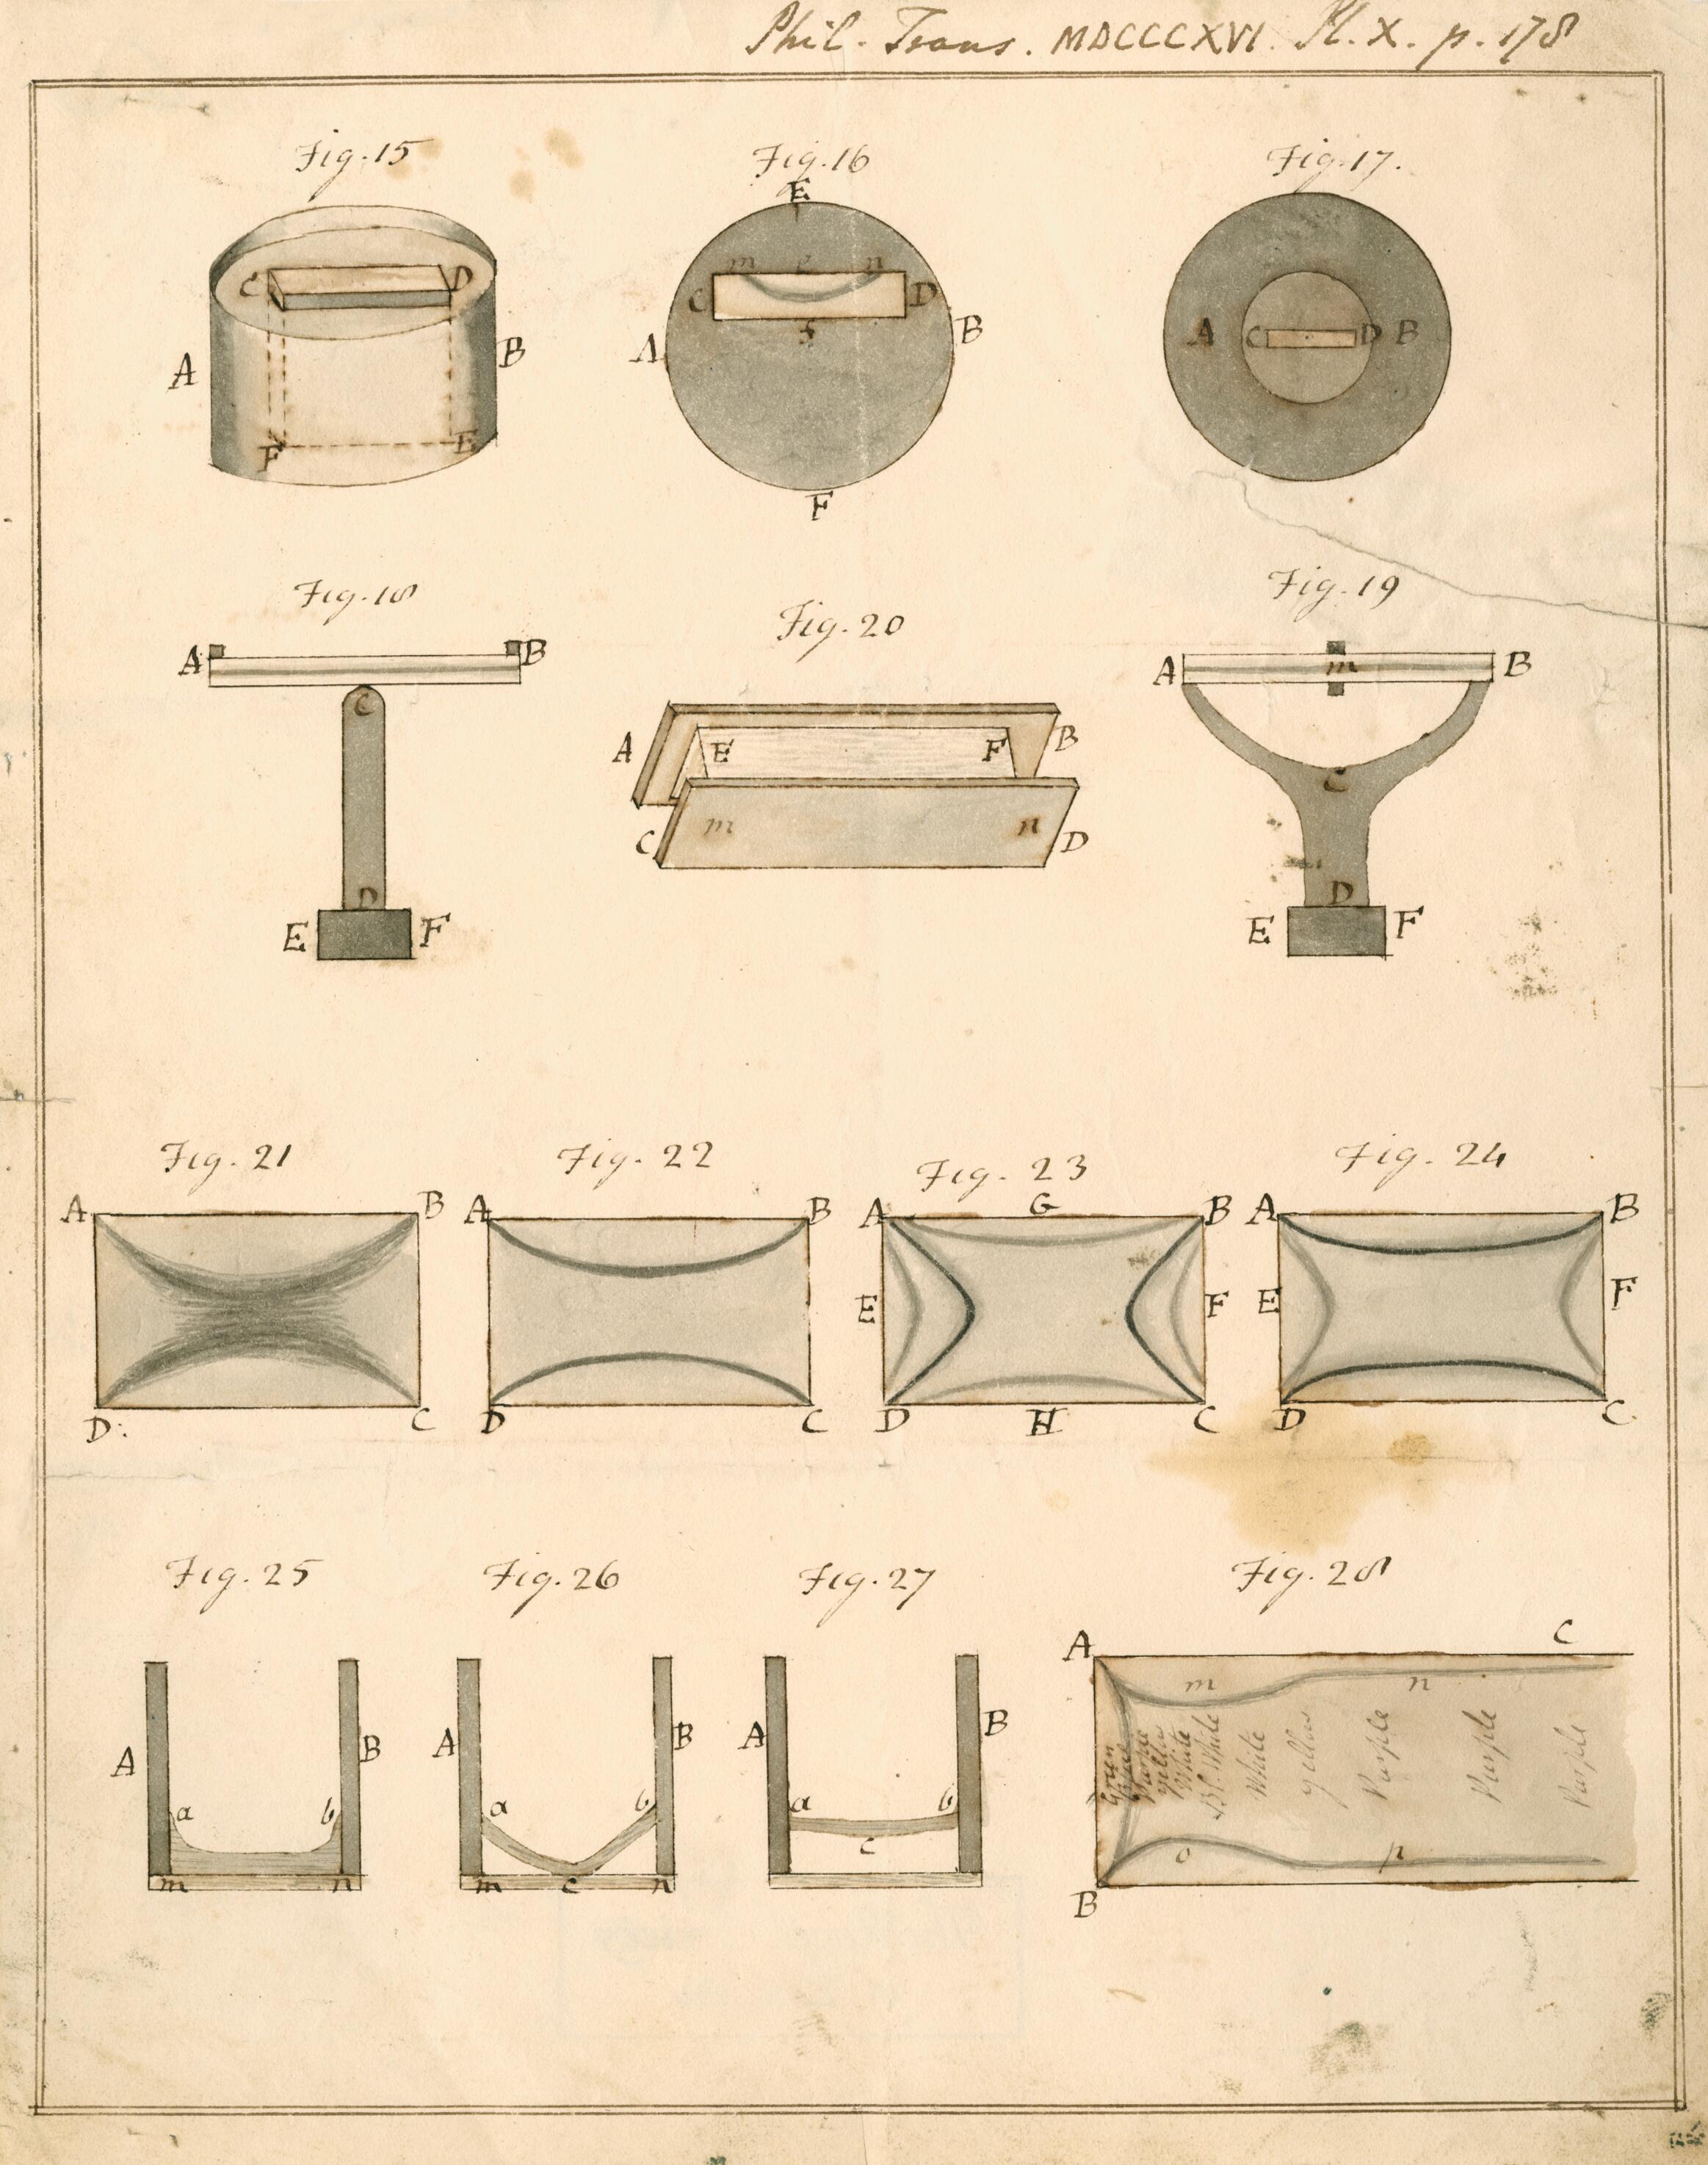 Phil. Trans. MDCCCXVI. Pl. X. p. 178
Fig. 15
C D
A B
F E
Fig. 16
E
m e n
C D
A B
f
F
Fig. 17.
A C D B
Fig. 18
A B
C
D
E F
Fig. 20
A E F B
C m n D
Fig. 19
A m B
C
D
E F
Fig. 21
A B
D: C
Fig. 22
A B
D C
Fig. 23
A G B
E F
D H C
Fig. 24
A B
E F
D C
Fig. 25
A B
a b
m n
Fig. 26
A B
a b
m c n
Fig. 27
A B
a b
c
Fig. 28
A C
m n
Green
Blue
Yellow
White
Bl. White
White
Yellow
Purple
Purple
Purple
o p
B